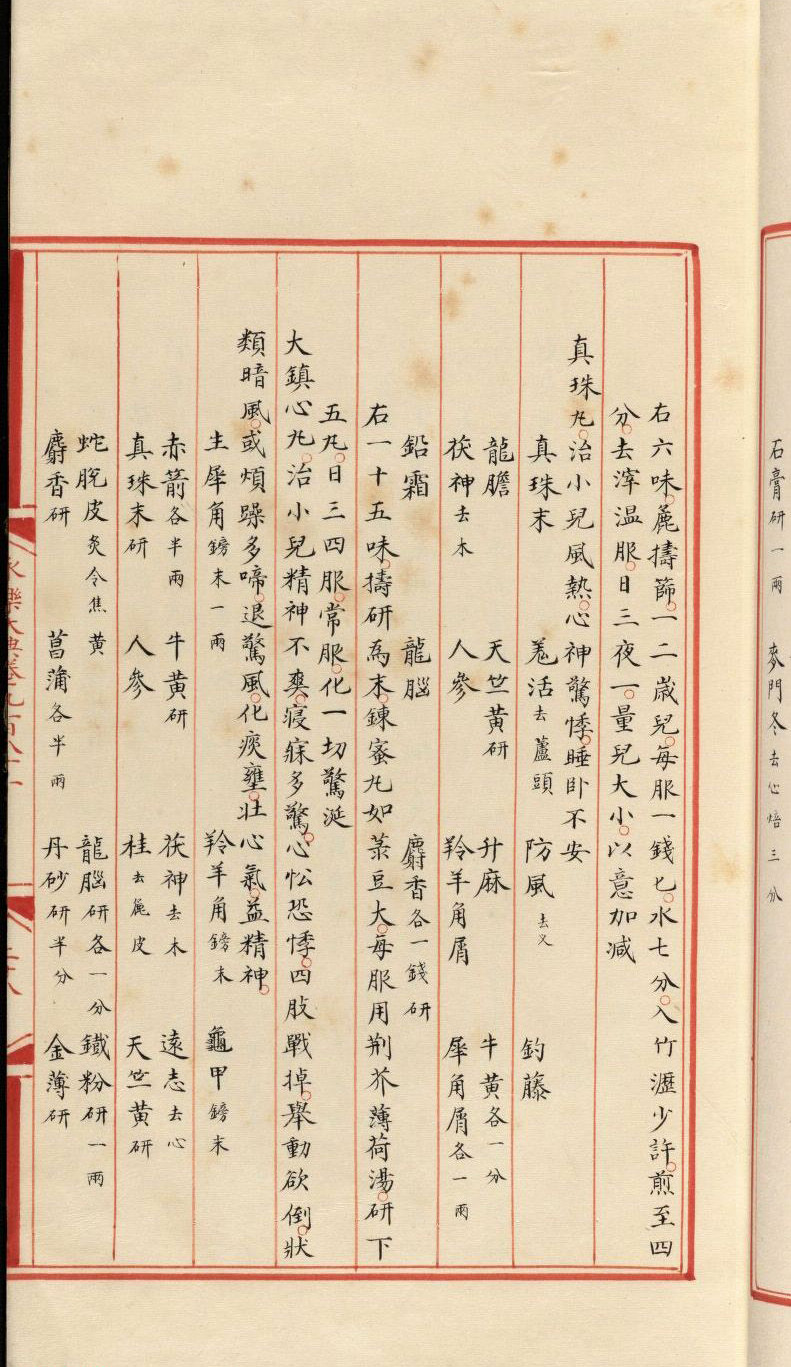 石膏研一兩　麥門冬去心焙三分
右六味。麄擣篩。一二歲兒。每服一錢匕。水七分。入竹瀝少許。煎至四
分。去滓溫服。日三夜一。量兒大小。以意加减
真珠丸。治小兒風熱。心神驚悸。睡卧不安
真珠末　羗活去蘆頭　防風去义　釣藤
龍膽　天竺黃研　升麻　牛黃各一分
茯神去木　人參　羚羊角屑　犀角屑各一兩
鉛霜　龍腦　麝香各一錢研
右一十五味。擣研為末。鍊蜜丸如菉豆大。每服用荆芥薄荷湯。研下
五丸。日三四服。常服。化一切驚涎
大鎮心丸。治小兒精神不爽。寢寐多驚。心忪恐悸。四肢戰掉。舉動欲倒。狀
類暗風。或煩躁多啼。退驚風。化痰壅。壯心氣。益精神。
生犀角鎊末一兩　羚羊角鎊末　龜甲鎊末
赤箭各半兩　牛黃研　茯神去木　遠志去心
真珠末研　人參　桂去麄皮　天竺黃研
蛇脫皮炙令焦黃　龍腦研各一分　鐵粉研一兩
麝香研　菖蒲各半兩　丹砂研半分　金薄研
永樂大典卷九百八十一